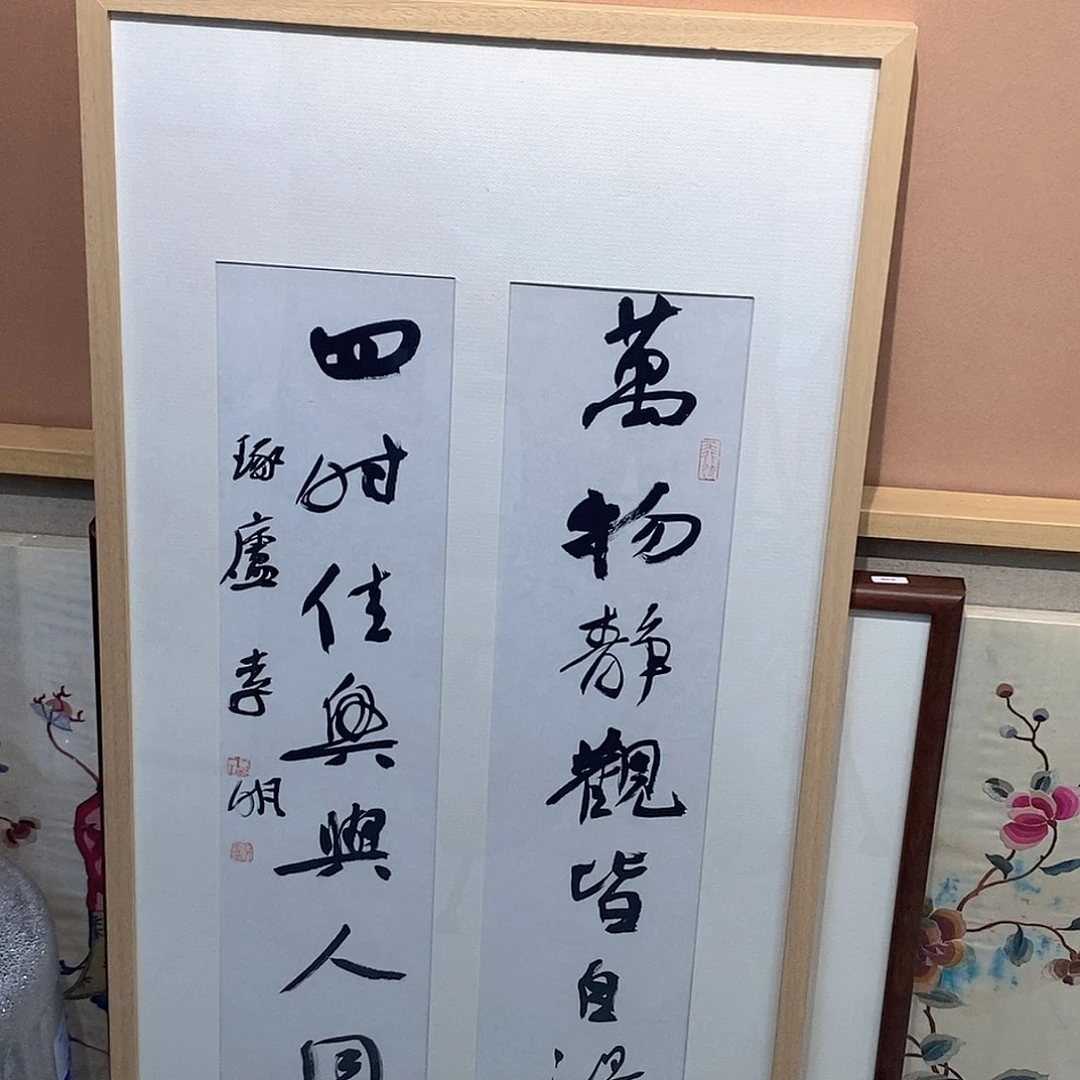 萬物靜觀皆自得
四时佳興與人同
琢廬 李明